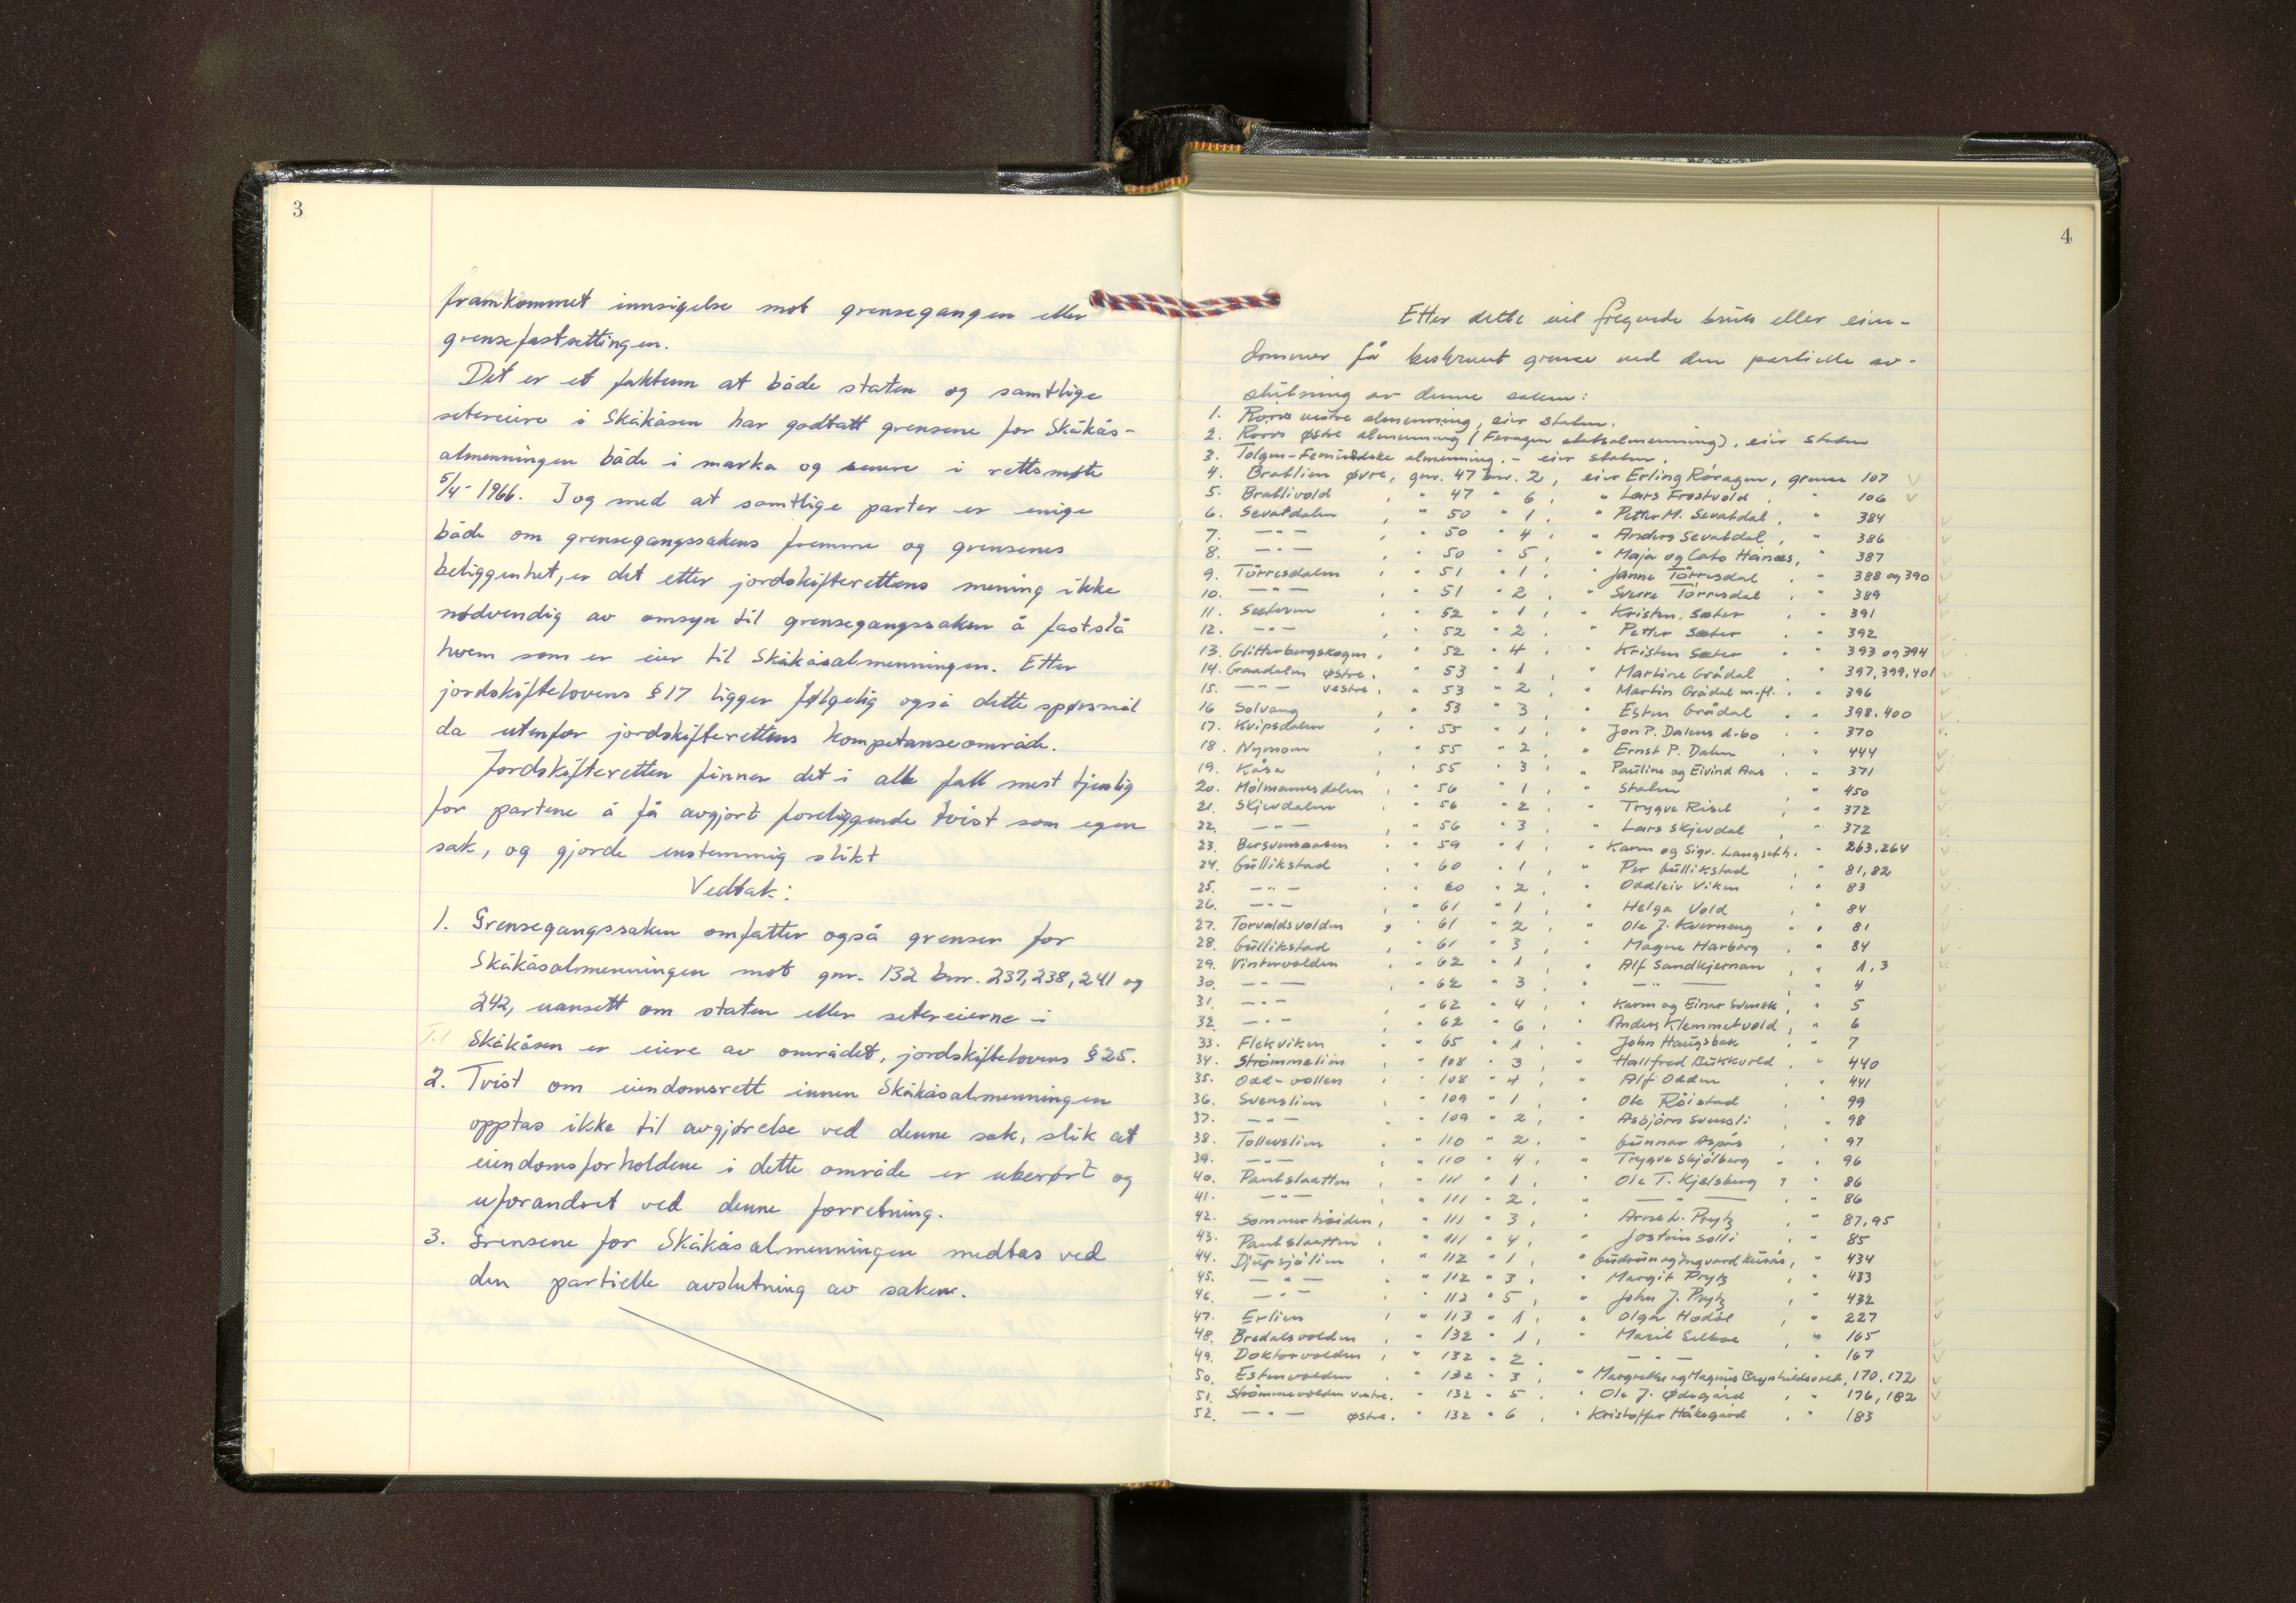 3
framkommet innsigelse mot grensegangen eller
grensefastsettingen.
Det er et faktum at både staten og samtlige
setereiere i Skåkåsen har godtatt grensene for Skåkås-
almenningen både i marka og senere i rettsmøte
5/4-1966. I og med at samtlige parter er enige
både om grensegangssakens fremme og grensenes
beliggenhet, er det etter jordskifterettens mening ikke
nødvendig av omsyn til grensegangssaken å fastslå
hvem som er eier til Skåkåsalmenningen. Etter
jordskiftelovens § 17 ligger følgelig også dette spørsmål
da utenfor jordskifterettens kompetanseområde.
Jordskifteretten finner det i alle fall mest tjenlig
for partene å få avgjort foreliggende tvist som egen
sak, og gjorde enstemmig slikt
Vedtak:
1. Grensegangssaken omfatter også grensen for
Skåkåsalmenningen mot gnr. 132 bnr. 237, 238, 241 og
242, uansett om staten eller setereierne i
Skåkåsen er eiere av området, jordskiftelovens § 25.
2. Tvist om eiendomsrett innen Skåkåsalmenningen
opptas ikke til avgjørelse ved denne sak, slik at
eiendomsforholdene i dette område er uberørt og
uforandret ved denne forretning.
3. Grensene for Skåkåsalmenningen medtas ved
den partielle avslutning av saken.
4
Etter dette vil følgende bruk eller eien-
dommer få beskrevet grense ved den partielle av-
slutning av denne saken:
1. Røros vestre almenning, eier staten.
2. Røros østre almenning (Feragen statsalmenning), eier staten
3. Tolgen-Femundske almenning, - eier staten.
4. Bratlien øvre, gnr. 47 bnr. 2, eier Erling Røragen, grense 107
5. Bratlivold , " 47 " 6, " Lars Frostvold , " 106
6. Sevatdalen , " 50 " 1, " Petter M. Sevatdal , " 384
7. — " — , " 50 " 4, " Anders Sevatdal , " 386
8. — " — , " 50 " 5, " Maja og Cato Hånæs, " 387
9. Törresdalen , " 51 " 1, " Janne Törresdal , " 388 og 390
10. — " — , " 51 " 2, " Sverre Törresdal , " 389
11. Sæteren , " 52 " 1, " Kristen Sæter , " 391
12. — " — , " 52 " 2, " Petter Sæter , " 392
13. Glitterbergskogen, " 52 " 4, " Kristen Sæter , " 393 og 394
14. Graadalen østre, " 53 " 1, " Martine Grådal , " 397, 399, 401
15. — " — vestre, " 53 " 2, " Martin Grådal m.fl. , " 396
16. Solvang , " 53 " 3, " Esten Grådal , " 398, 400
17. Kvipsdalen , " 55 " 1, " Jon P. Dalens d.bo , " 370
18. Nymoen , " 55 " 2, " Ernst P. Dalen , " 444
19. Kåsa , " 55 " 3, " Pauline og Eivind Aas , " 371
20. Holmannsdalen , " 56 " 1, " Staten , " 450
21. Skjevdalen , " 56 " 2, " Trygve Riset , " 372
22. — " — , " 56 " 3, " Lars Skjevdal , " 372
23. Bersvensaasen , " 59 " 1, " Karen og Sigv. Langseth, " 263, 264
24. Gullikstad , " 60 " 1, " Per Gullikstad , " 81, 82
25. — " — , " 60 " 2, " Oddleiv Viken , " 83
26. — " — , " 61 " 1, " Helga Vold , " 84
27. Torvaldsvolden , " 61 " 2, " Ole J. Kverneng , " 81
28. Gullikstad , " 61 " 3, " Magne Harborg , " 84
29. Vintervolden , " 62 " 1, " Alf Sandkjernan , " 1, 3
30. — " — , " 62 " 3, " — " — , " 4
31. — " — , " 62 " 4, " Karen og Einar Svensk , " 5
32. — " — , " 62 " 6, " Anders Klemmetvold , " 6
33. Flekviken , " 65 " 1, " John Haugsbak , " 7
34. Strömmelien , " 108 " 3, " Hallfred Bukkvold , " 440
35. Odd-vollen , " 108 " 4, " Alf Odden , " 441
36. Svenslien , " 109 " 1, " Ole Röistad , " 99
37. — " — , " 109 " 2, " Asbjörn Svensli , " 98
38. Tollevslien , " 110 " 2, " Gunnar Aspås , " 97
39. — " — , " 110 " 4, " Trygve Skjölberg , " 96
40. Pantslaatten , " 111 " 1, " Ole T. Kjelsberg , " 86
41. — " — , " 111 " 2, " — " — , " 86
42. Sommerhöiden, " 111 " 3, " Arne L. Prytz , " 87, 95
43. Pantslaatten , " 111 " 4, " Jostein Solli , " 85
44. Djupsjölien , " 112 " 1, " Gudrun og Ingvard Kurås, " 434
45. — " — , " 112 " 3, " Margit Prytz , " 433
46. — " — , " 112 " 5, " John J. Prytz , " 432
47. Erlien , " 113 " 1, " Olga Hodöl , " 227
48. Bredalsvolden , " 132 " 1, " Marit Selboe , " 165
49. Doktorvolden , " 132 " 2, — " — " 167
50. Estenvolden , " 132 " 3, " Margrethe og Magnus Brynhildsvold, 170, 172
51. Strömmevolden vestre, " 132 " 5, " Ole J. Ødegård , " 176, 182
52. — " — østre, " 132 " 6, " Kristoffer Håksgård , " 183